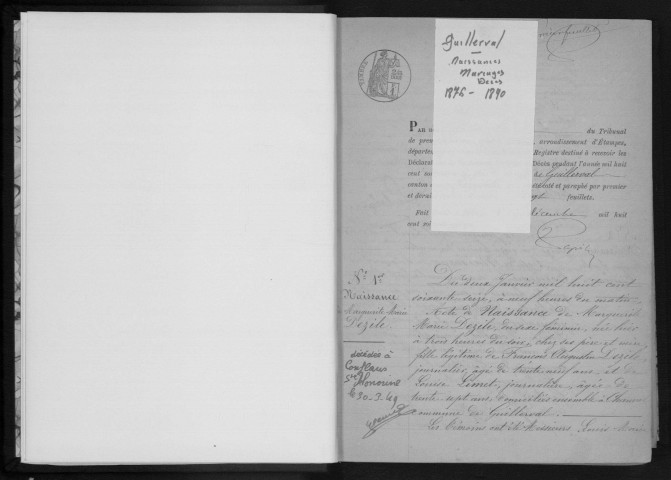 Guillerval
Naissances
Mariages
Décès
1876 - 1890
du Tribunal
arrondissement d'Étampes,
Registre destiné à recevoir les
Déclarat
Décès pendant l'année mil huit
cent
Guillerval
coté et paraphé par premier
et derni
feuillets.
Fait
décembre mil huit
cent
N° 1er
Naissance
Marguerite Marie
Dezile
décédée à
Conflans
Ste Honorine
le 30-3-49
Du deux Janvier mil huit cent
soixante seize, à neuf heures du matin
Acte de Naissance de Marguerite
Marie Dezile, du sexe féminin, née hier
à trois heures du soir, chez ses père et mère
fille légitime de François Augustin Dezile
journalier, âgé de trente neuf ans, et de
Louise Limet, journalière, âgée de
trente sept ans, domiciliés ensemble à
commune de Guillerval.
Les témoins ont été Messieurs, Louis Marie